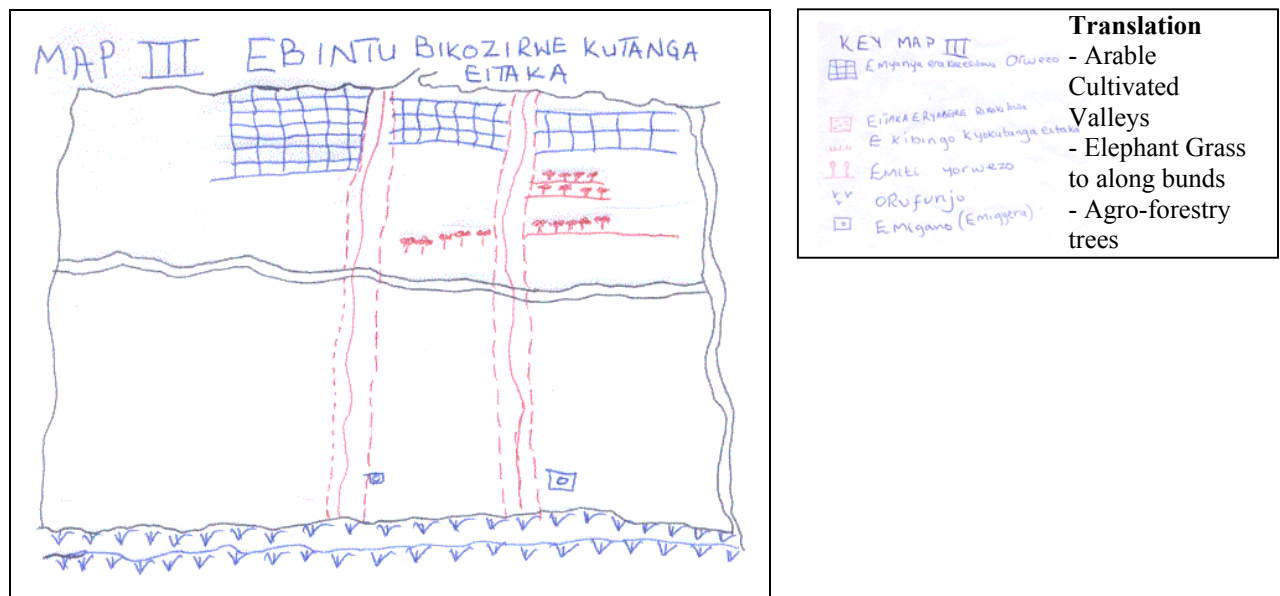 MAP III EBINTU BIKOZIRWE KUTANGA
EITAKA
KEY MAP III
Emyanya Orwezo
EITAKA
E kibingo kyokutanga eitaka
Emiti yorwezo
ORufunjo
Emigano (Emiggera)
Translation
- Arable
Cultivated
Valleys
- Elephant Grass
to along bunds
- Agro-forestry
trees